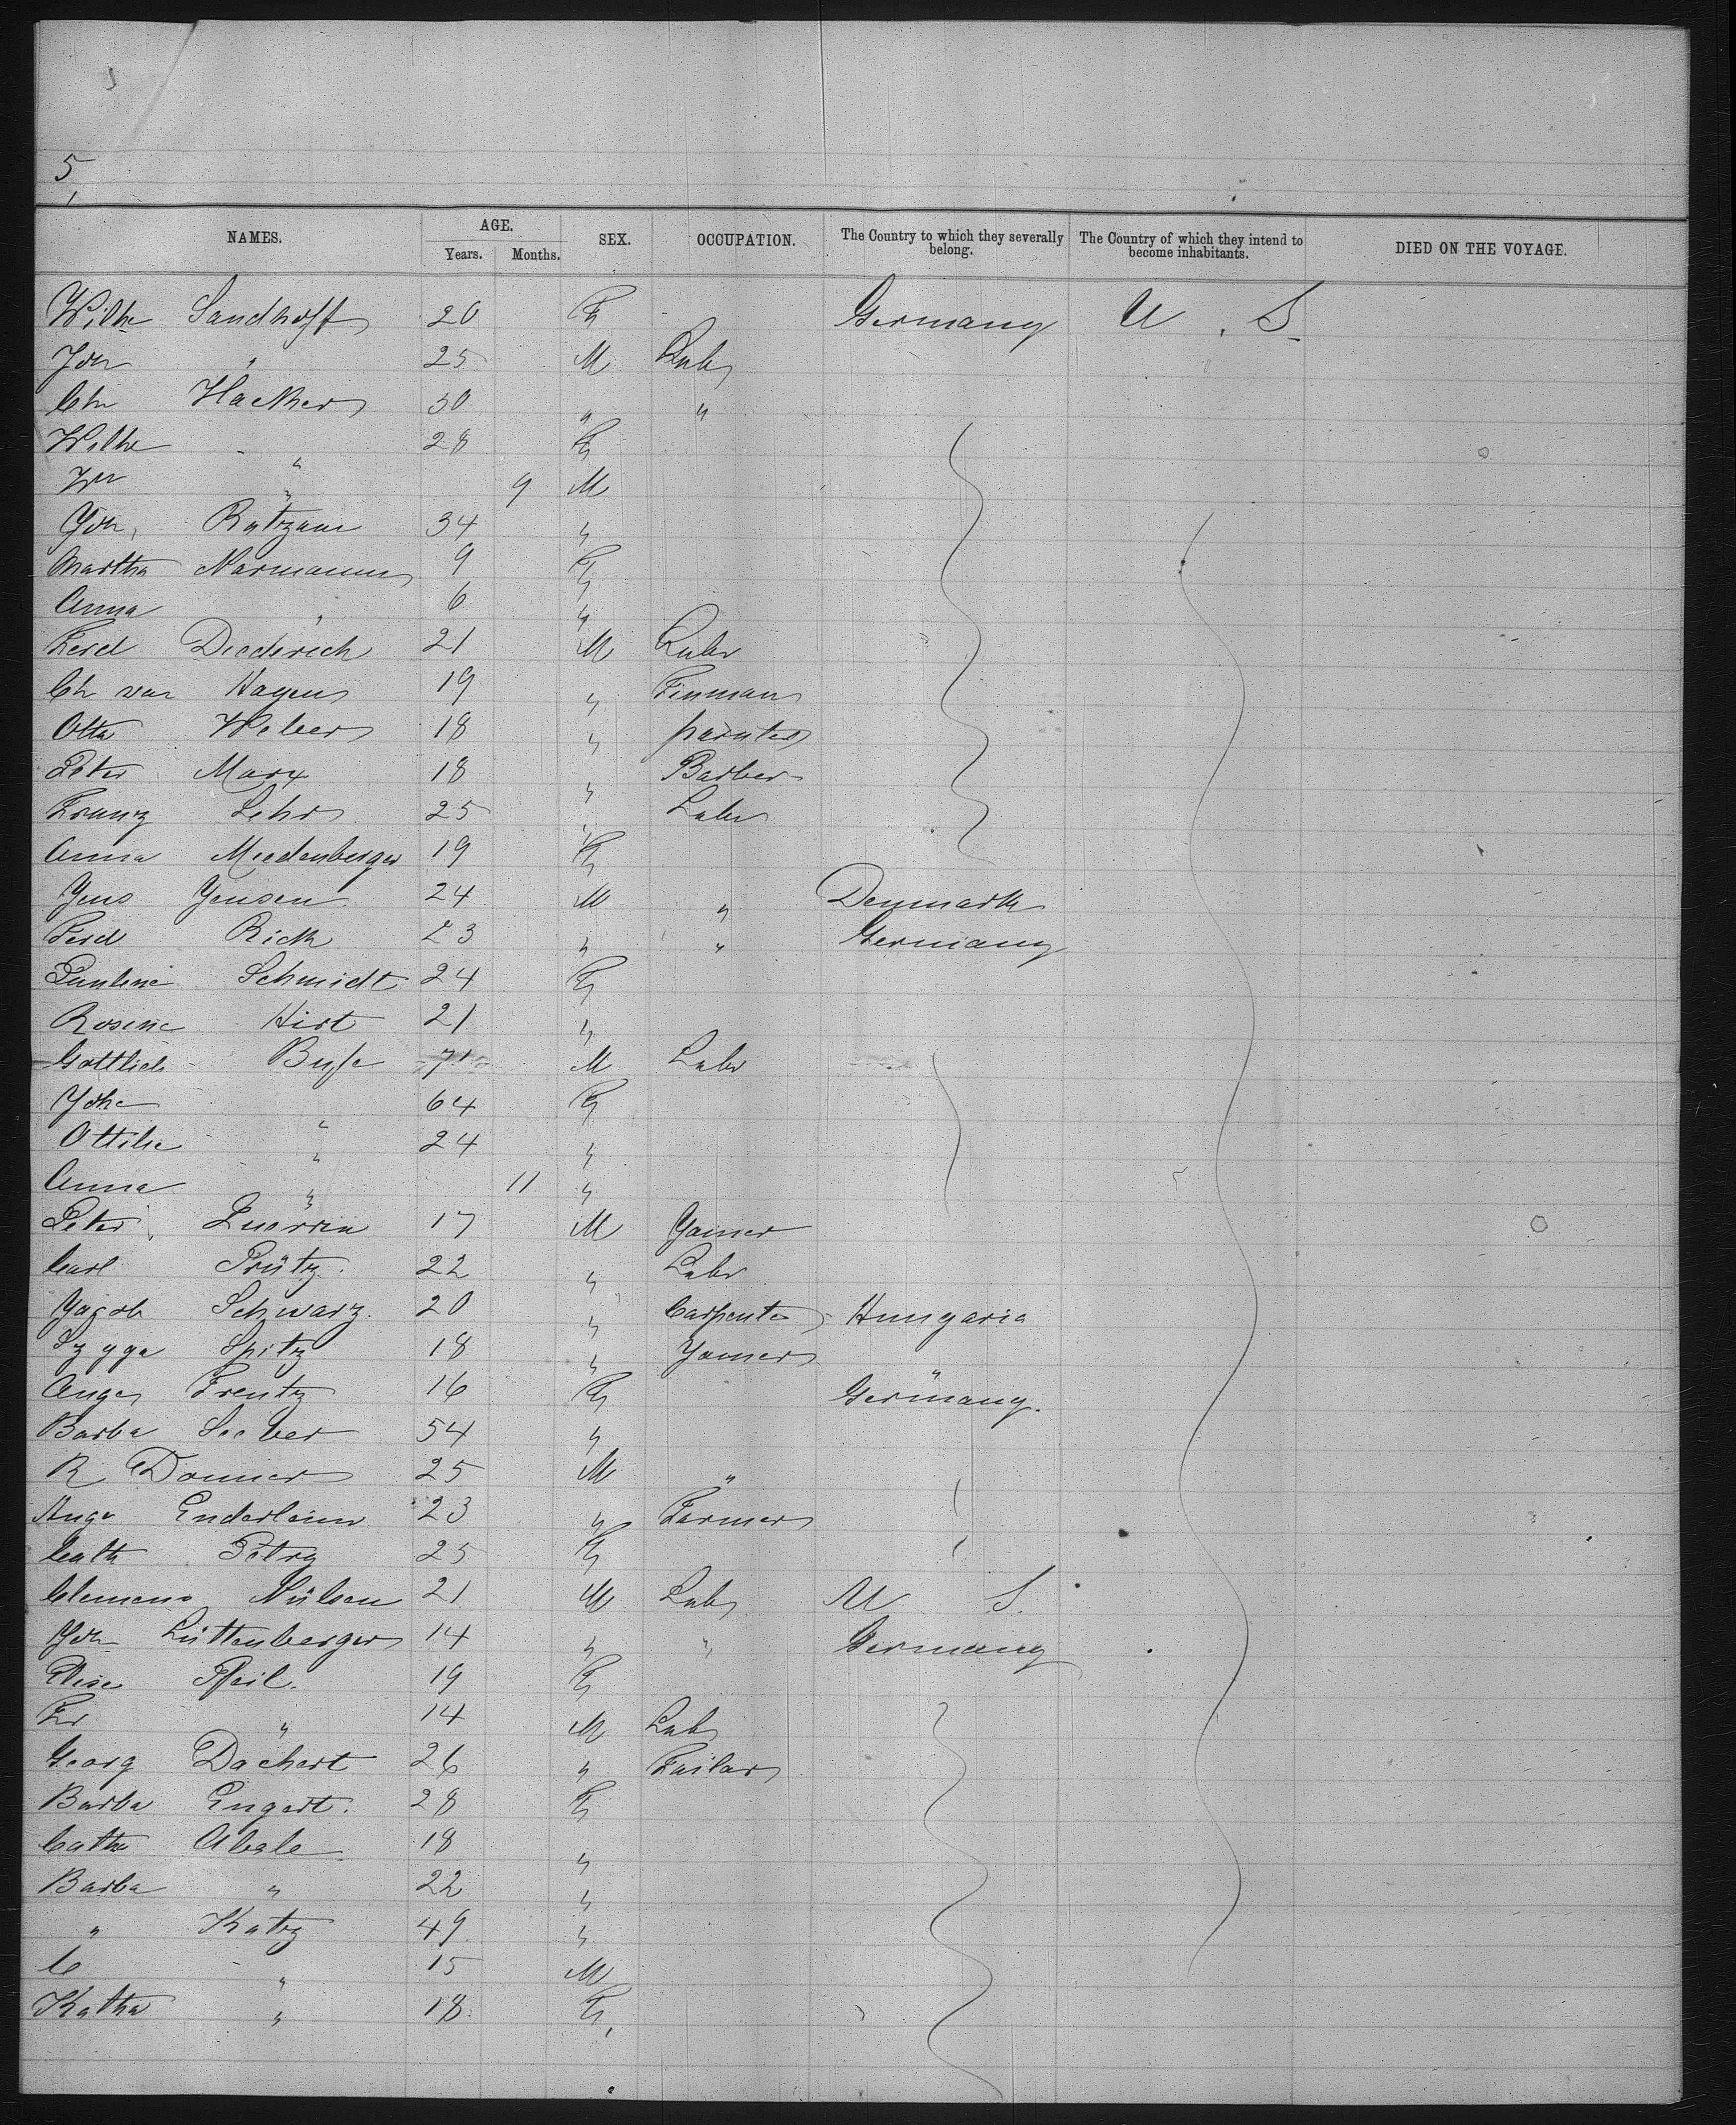 5
NAMES. AGE. Years. Months. SEX. OCCUPATION. The Country to which they severally belong. The Country of which they intend to become inhabitants. DIED ON THE VOYAGE.
Wilhe Sandhoff 20 F Germany U. S.
Joh " 25 M Labr
Chr Hacker 30 " "
Wilhe " 28 F
Wm " 9 M
Joh, 34 "
Martha Normann 9 F
Anna " 6 "
Ferd Diederich 21 M Labr
Ch von Hagen 19 " Tinman
Otto Weber 18 " painter
Peter Marx 18 " Barber
Franz Lehr 25 " Labr
Anna Miedenberger 19 F
Jens Jensen 24 M " Denmark
Ferd Rick 23 " " Germany
Pauline Schmidt 24 F
Rosine Hirt 21 "
Gottlieb Buße 71 M Labr
Johe " 64 F
Ottilie " 24 "
Anna " 11 "
Peter 17 M Joiner
Carl Prütz 22 " Labr
Jacob Schwarz 20 " Carpenter Hungaria
Spitz 18 " Joiner "
Ange Frentz 16 F Germany.
Barba Seeber 54 "
R Donner 25 M "
Augu Enderlein 23 " Farmer
Cath Petry 25 F
Clemens Nülsen 21 M Labr U S.
Joh Luttenberger 14 " " Germany
Elise Pfeil. 19 F
Fr " 14 M Labr
Georg Dachert 26 " Tailor
Barba Engert. 28 F
Catha Abele 18 "
Barba " 22 "
" Katz 49 "
C " 15 M
Katha " 18 F,